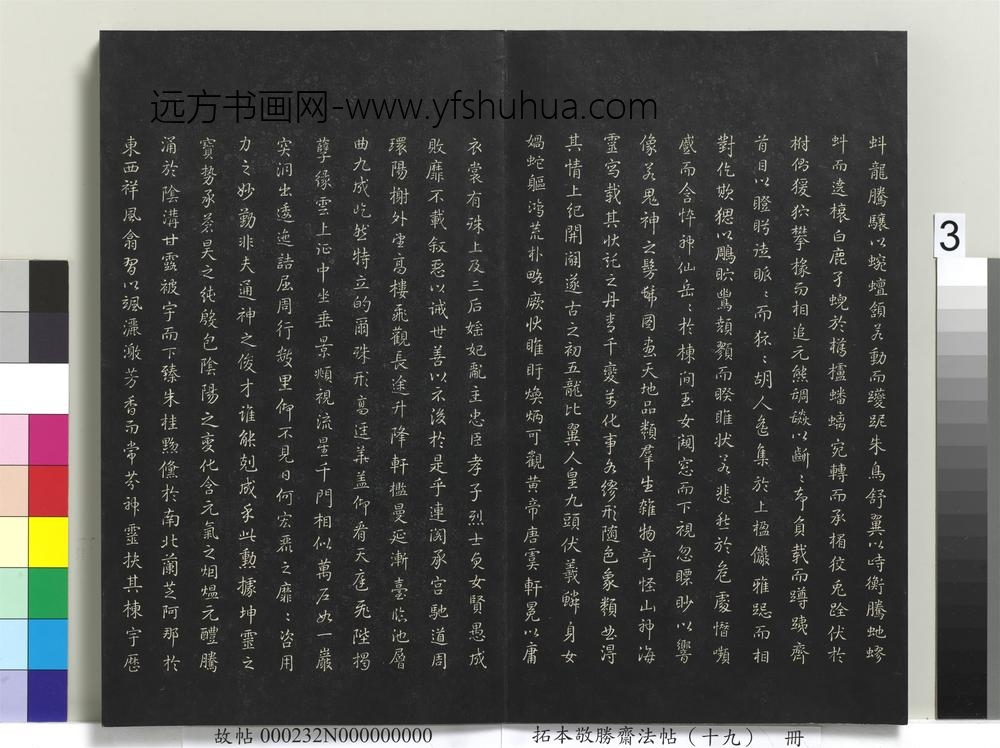 远方书画网-www.yfshuhua.com
虯龍騰驤以蜿蟺頷若動而躨跜朱鳥舒翼以峙衡騰虵蟉
虯而遶榱白鹿孑蜺於欂櫨蟠螭宛轉而承楣狡兔跧伏於
柎側猨狖攀椽而相追元熊舑舕以齗齗却負載而蹲跠齊
首目以瞪眄徒眽眽而狋狋胡人遙集於上楹儼雅跽而相
對仡欺𤟧以鵰𥄎顤顟而睽睢狀若悲愁於危處憯嚬
蹙而含悴神仙岳岳於棟間玉女闚窓而下視忽瞟眇以響
像若鬼神之髣髴圖畫天地品類羣生雜物奇怪山神海
靈寫載其狀託之丹青千變萬化事各繆形隨色象類曲得
其情上紀開闢遂古之初五龍比翼人皇九頭伏羲鱗身女
媧蛇軀鴻荒朴略厥狀睢盱煥炳可觀黃帝唐虞軒冕以庸
衣裳有殊上及三后婬妃亂主忠臣孝子烈士貞女賢愚成
敗靡不載敘惡以誡世善以示後於是乎連閣承宮馳道周
環陽榭外望高樓飛觀長途升降軒檻曼延漸臺臨池層
曲九成屹然特立的爾殊形高徑華蓋仰看天庭飛陛揭
孽緣雲上征中坐垂景頫視流星千門相似萬戶如一巖
突洞出逶迤詰屈周行數里仰不見日何宏麗之靡靡咨用
力之妙勤非夫通神之俊才誰能剋成乎此勳據坤靈之
寶勢承蒼昊之純殷包陰陽之變化含元氣之烟熅元醴騰
涌於陰溝甘露被宇而下臻朱桂黝儵於南北蘭芝阿那於
東西祥風翕習以颯灑激芳香而常芬神靈扶其棟宇歷
3
故帖 000232N000000000
拓本敬勝齋法帖（十九） 冊